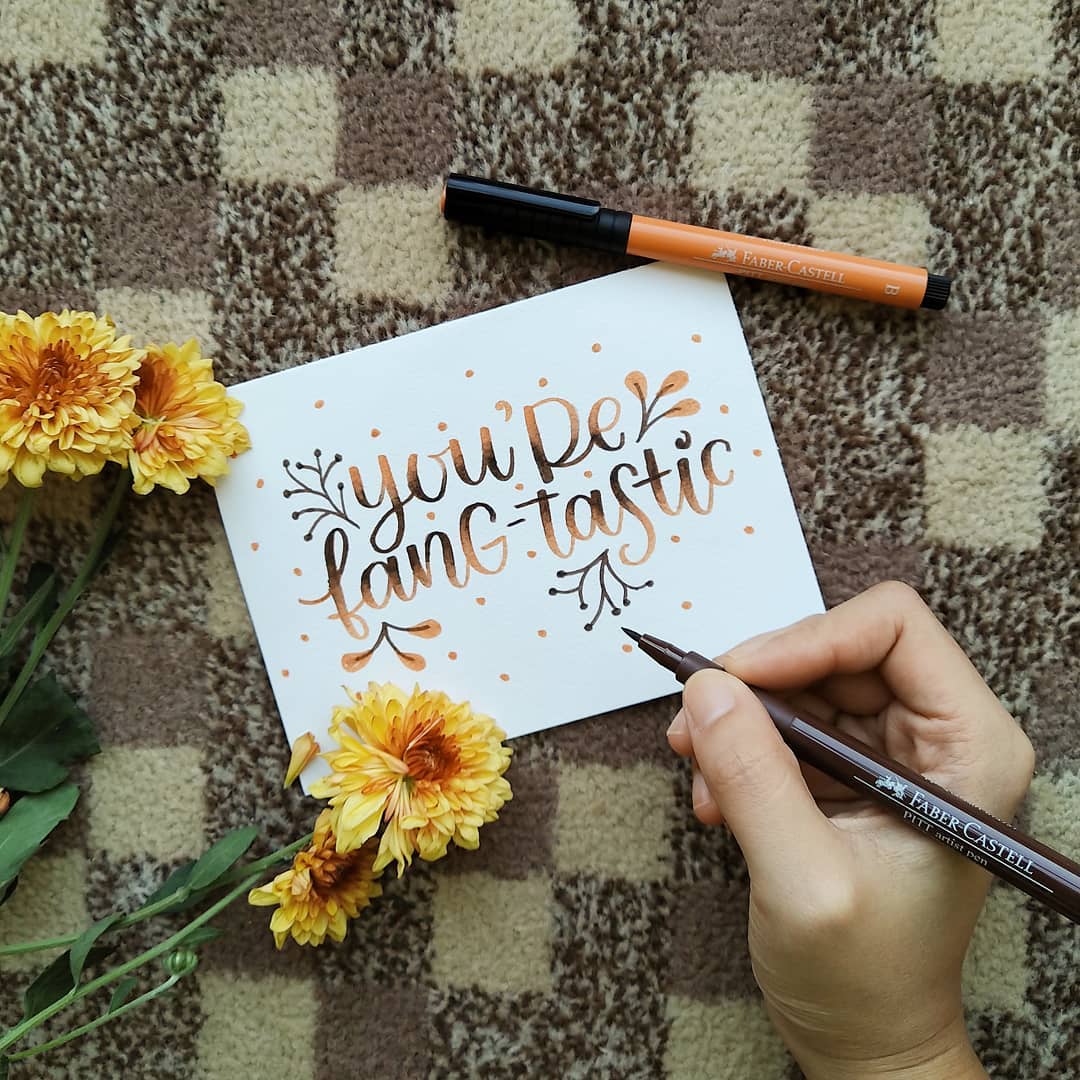 FABER-CASTELL
PITT artist pen
B
you're
fang-tastic
FABER-CASTELL
PITT artist pen